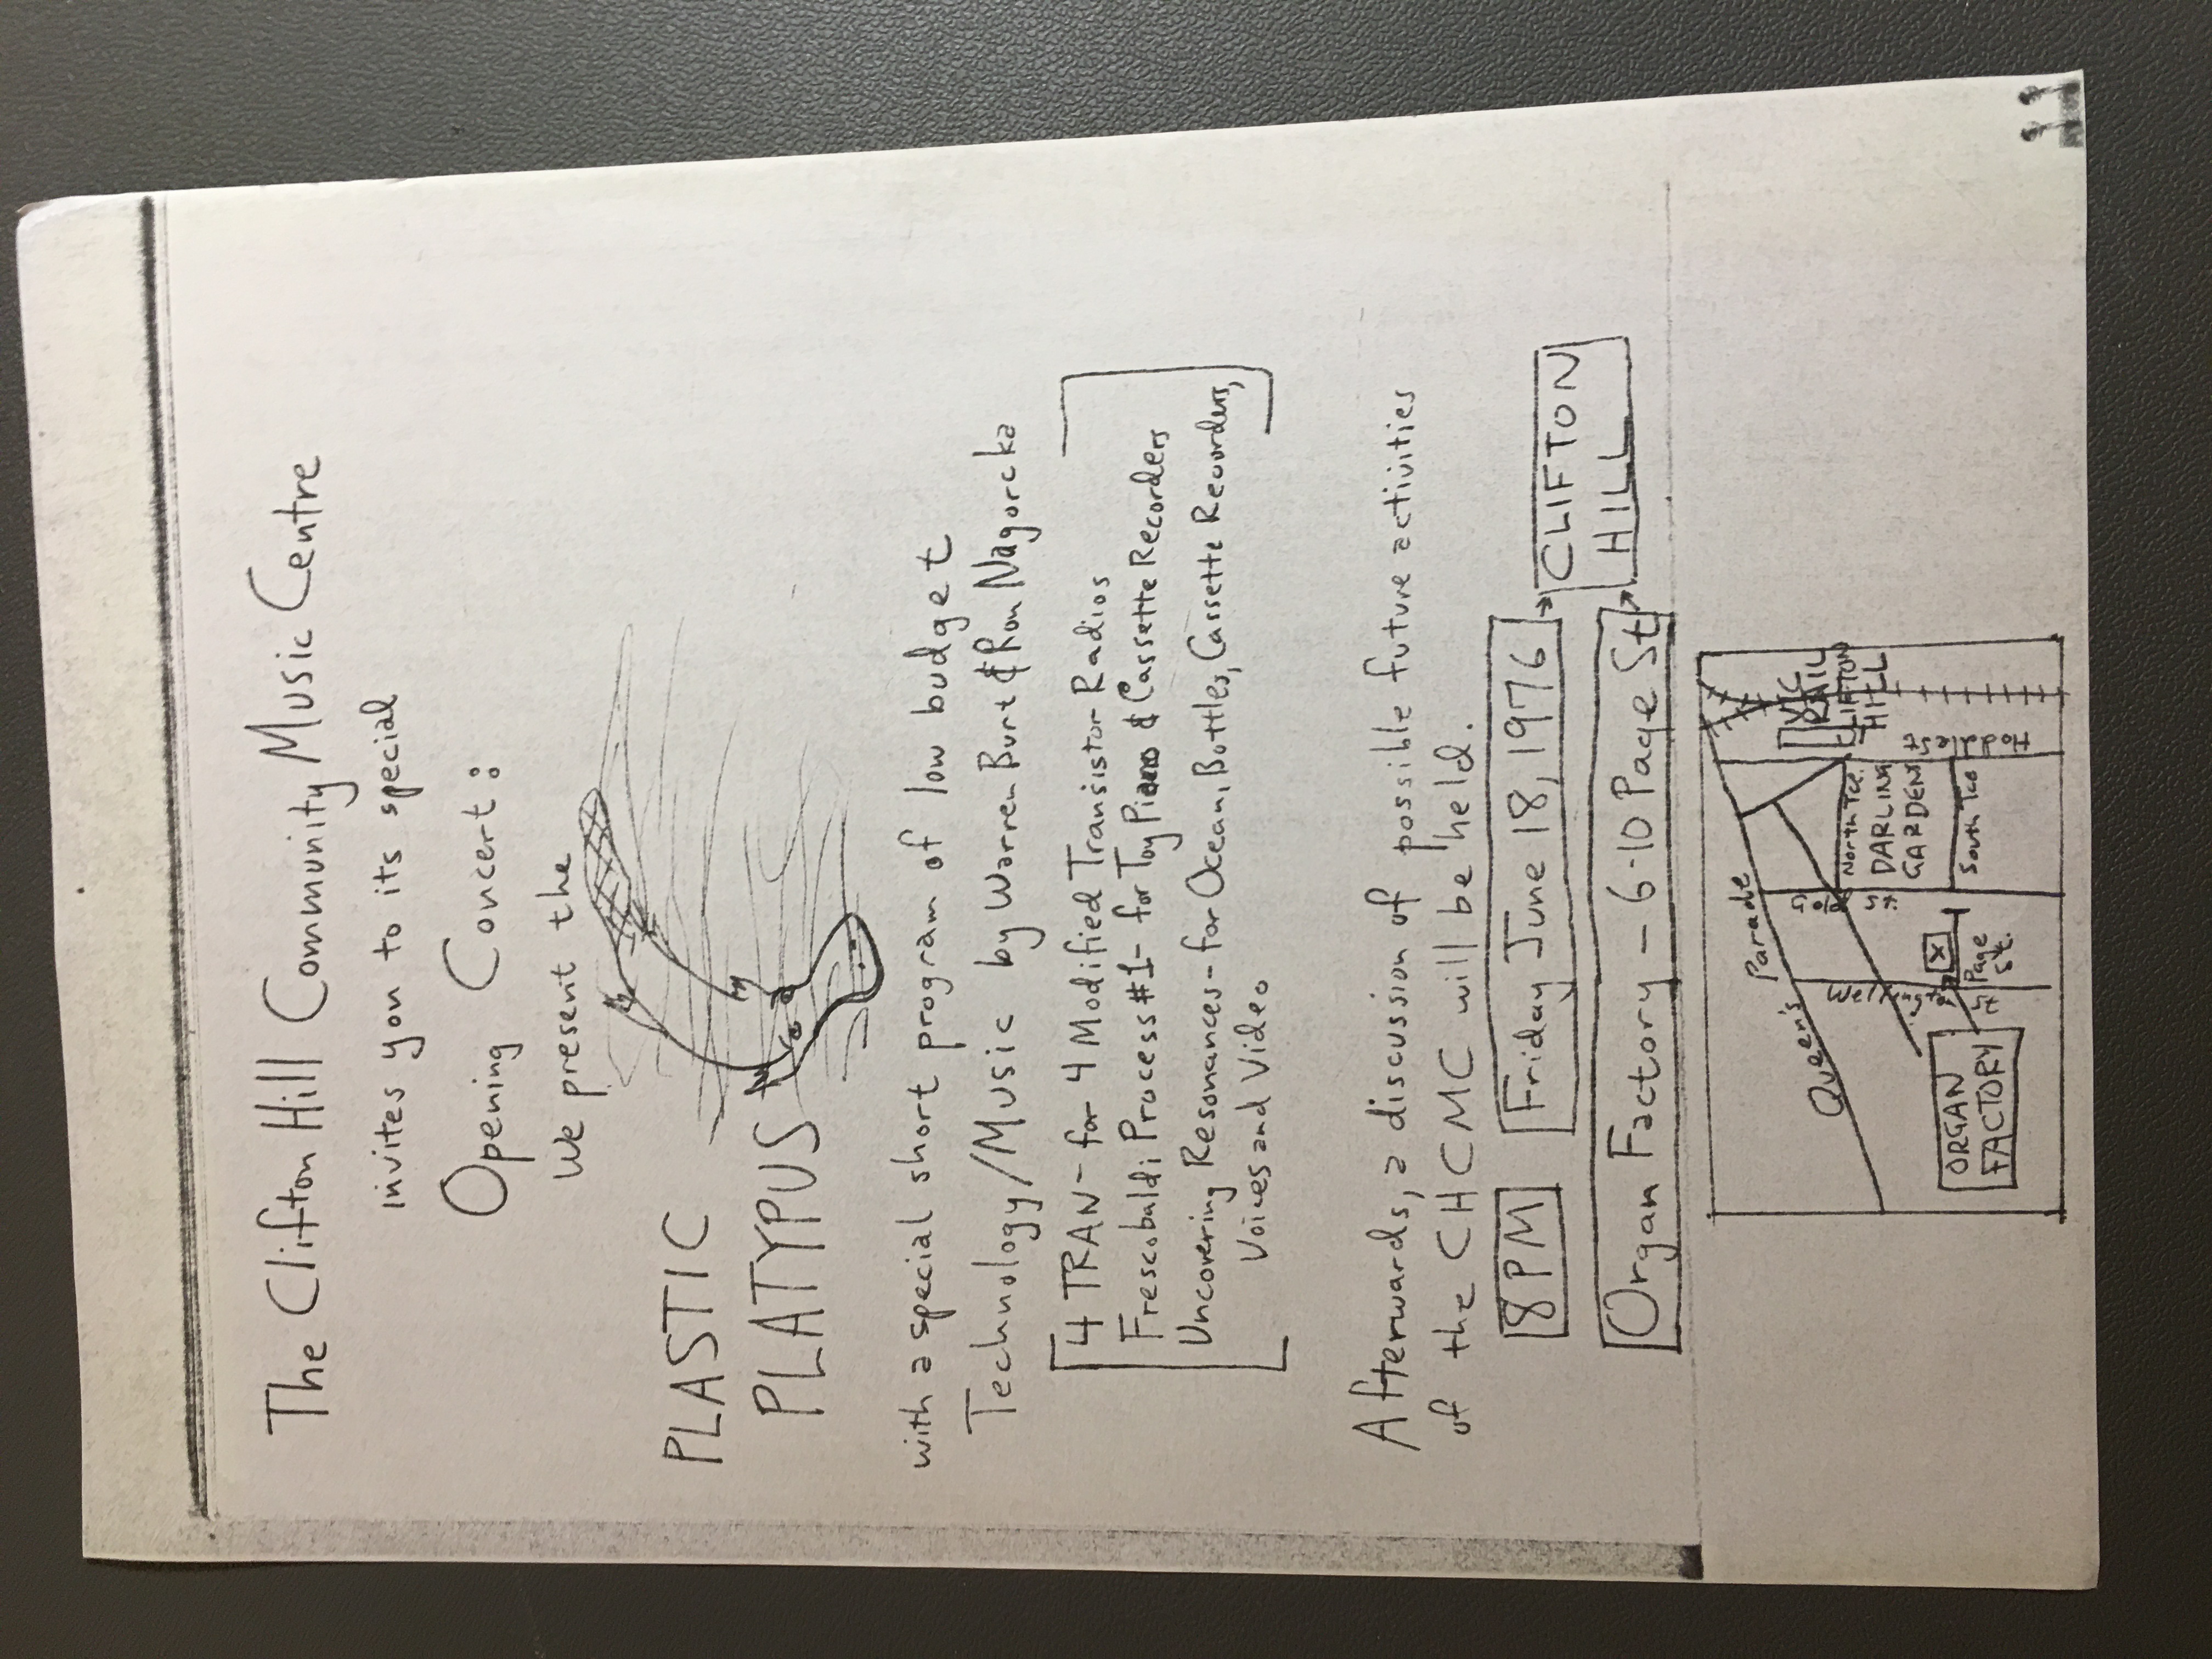 The Clifton Hill Community Music Centre
invites you to its special
Opening Concert:
we present the
PLASTIC
PLATYPUS
with a special short program of low budget
Technology/Music by Warren Burt & Ron Nagorcka
4 TRAN - for 4 Modified Transistor Radios
Frescobaldi Process #1 - for Toy Piano & Cassette Recorders
Uncovering Resonances - for Ocean, Bottles, Cassette Recorders,
Voices and Video
Afterwards, a discussion of possible future activities
of the CHCMC will be held.
8PM Friday June 18, 1976
Organ Factory - 6-10 Page St
CLIFTON
HILL
Queen's Parade
VIC
RAIL
CLIFTON
HILL
North Tce.
DARLING
GARDENS
South Tce
Wellington St
X
Page
St.
ORGAN
FACTORY